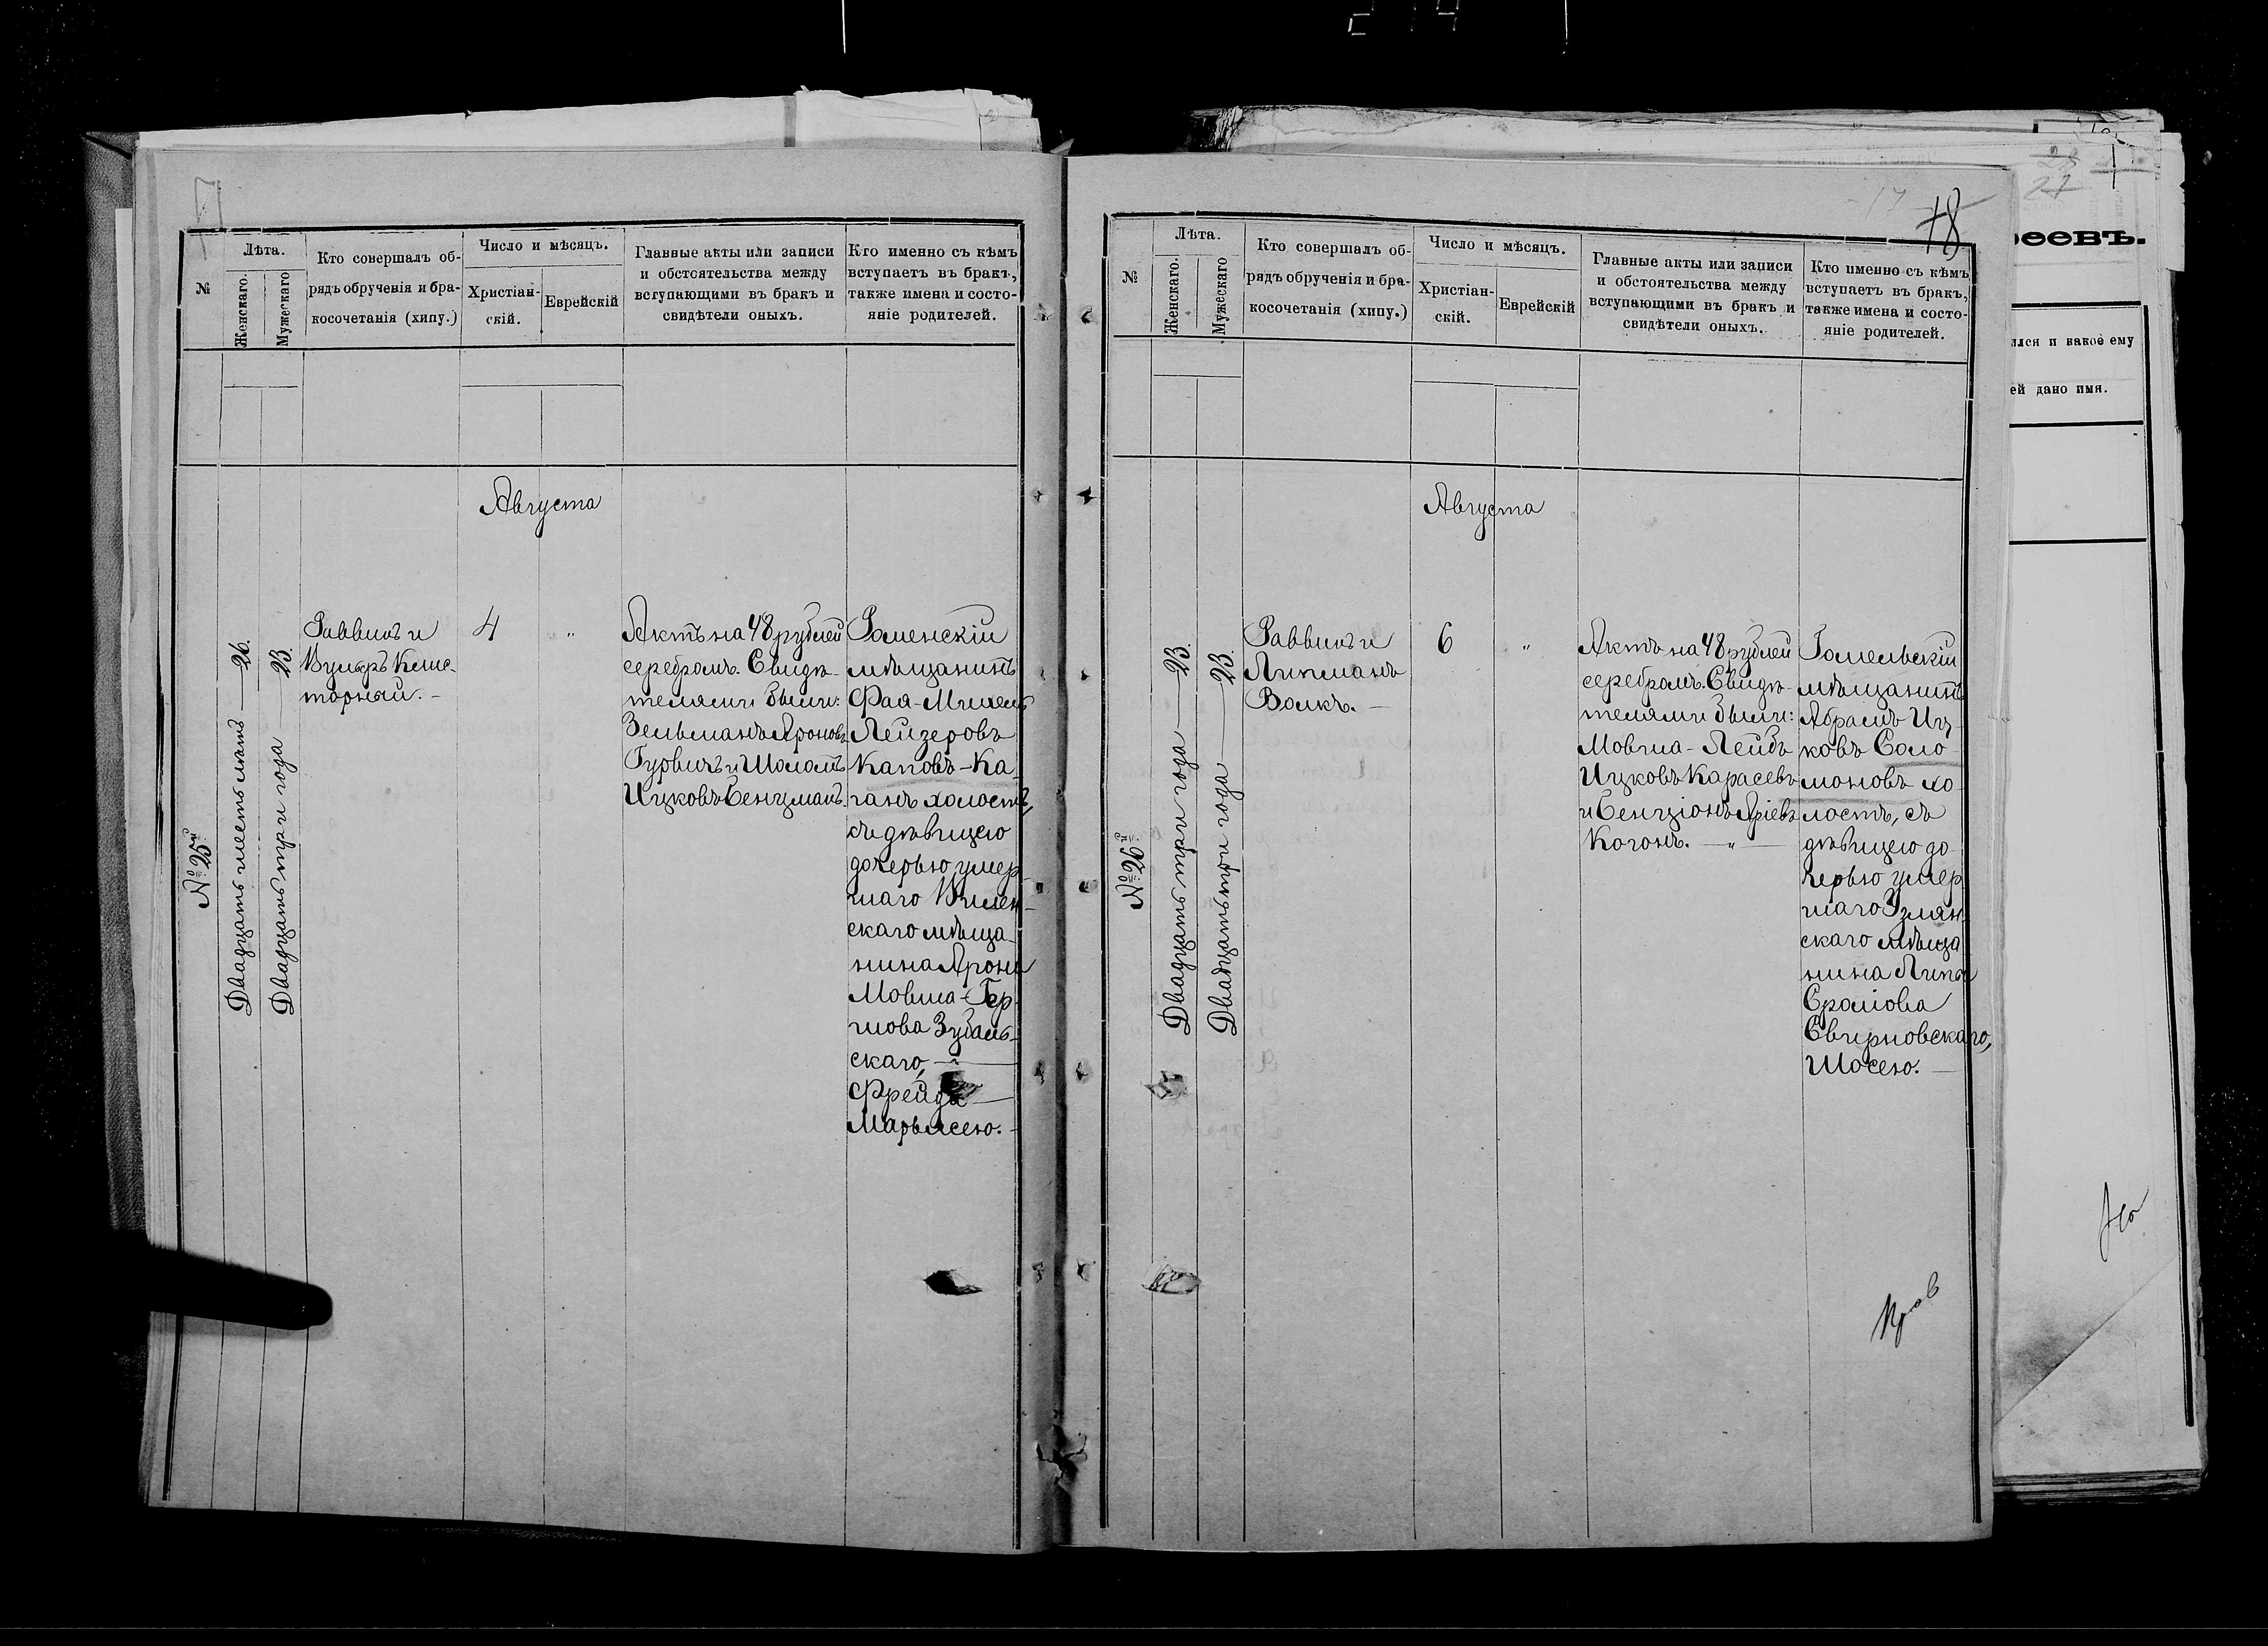 №
Лѣта.
Женскаго.
Мужескаго
Кто совершалъ об-
рядъ обрученія и бра-
косочетанія (хипу.)
Число и мѣсяцъ.
Христіан-
скій.
Еврейскій
Главные акты или записи
и обстоятельства между
вступающими въ бракъ и
свидѣтели оныхъ.
Кто именно съ кѣмъ
вступаетъ въ бракъ,
также имена и состо-
яніе родителей.
Августа
№ 25й
Двадцать шесть лѣтъ — 26.
Двадцать три года — 23.
Раввинъ и
Вульфъ Клис-
торный. —
4
"
Актъ на 48 рублей
серебромъ. Свидѣ-
телями были:
Зельманъ Ароновъ
Гурвичъ и Шоломъ
Ицковъ Бенцманъ.
Роменскій
мѣщанинъ
Фая-Михель
Лейзеровъ
Каповъ-Ка-
ганъ холостъ,
съ дѣвицею
дочерью умер-
шаго Вилен-
скаго мѣща-
нина Арона
Мовша-Гер-
шова Зубаль-
скаго, —
Фрейда —
Марьясею. —
18
№
Лѣта.
Женскаго.
Мужескаго
Кто совершалъ об-
рядъ обрученія и бра-
косочетанія (хипу.)
Число и мѣсяцъ.
Христіан-
скій.
Еврейскій
Главные акты или записи
и обстоятельства между
вступающими въ бракъ и
свидѣтели оныхъ.
Кто именно съ кѣмъ
вступаетъ въ бракъ,
также имена и состо-
яніе родителей.
Августа
№ 26й
Двадцать три года — 23.
Двадцать три года — 23.
Раввинъ и
Липманъ
Волкъ. —
6
"
Актъ на 48 рублей
серебромъ. Свидѣ-
телями были:
Мовша-Лейбъ
Ицковъ Карасевъ
и Бенціонъ Аріевъ
Когонъ. — " —
Гомельскій
мѣщанинъ
Абрамъ Иц-
ковъ Соло-
моновъ хо-
лостъ, съ
дѣвицею до-
черью умер-
шаго Узлян-
скаго мѣща-
нина Липы
Сроліова
Свирновскаго,
Шосею. —
27
ѳѳовъ.
ился и какое ему
ей дано имя.